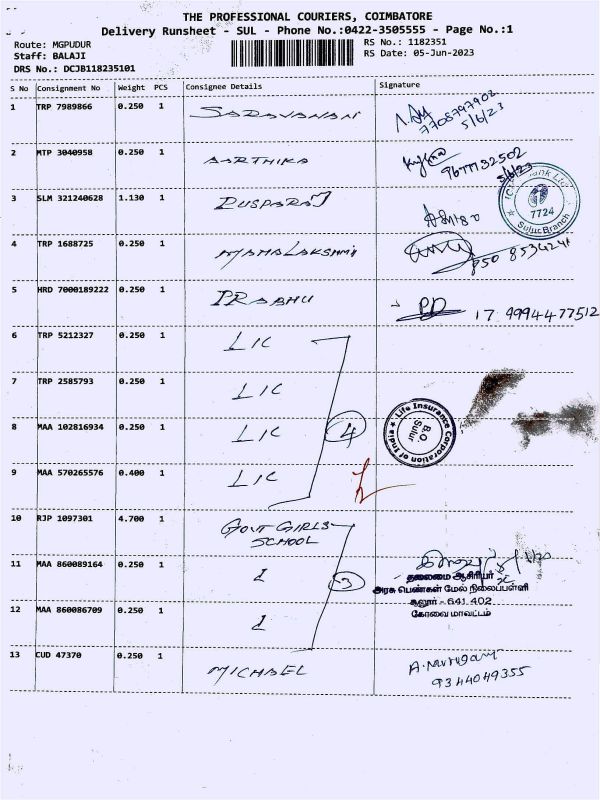 THE PROFESSIONAL COURIERS, COIMBATORE
Delivery Runsheet - SUL - Phone No.:0422-3505555 - Page No.:1
Route: MGPUDUR
RS No.: 1182351
Staff: BALAJI
RS Date: 05-Jun-2023
DRS No.: DCJB118235101
S No Consignment No Weight PCS Consignee Details Signature
1 TRP 7989866 0.250 1 SARAVANAN
7708797902
5/6/23
2 MTP 3040958 0.250 1 AARTHIKA
9677132502
5/6/23
3 SLM 321240628 1.130 1 PUSPARAJ
7724
Sulur Branch
4 TRP 1688725 0.250 1 MAHALAKSHMI
5 HRD 7000189222 0.250 1 PRABHU
PD 17 9994477512
6 TRP 5212327 0.250 1 LIC
7 TRP 2585793 0.250 1 LIC
8 MAA 102816934 0.250 1 LIC
4
Life Insurance Corporation of India
B.O
Sulur
9 MAA 570265576 0.400 1 LIC
10 RJP 1097301 4.700 1 GOVT GIRLS
SCHOOL
11 MAA 860089164 0.250 1
3
தலைமை ஆசிரியர்
அரசு பெண்கள் மேல் நிலைப்பள்ளி
சூலூர் - 641 402
கோவை மாவட்டம்
12 MAA 860086709 0.250 1
13 CUD 47370 0.250 1 MICHAEL
9344049355